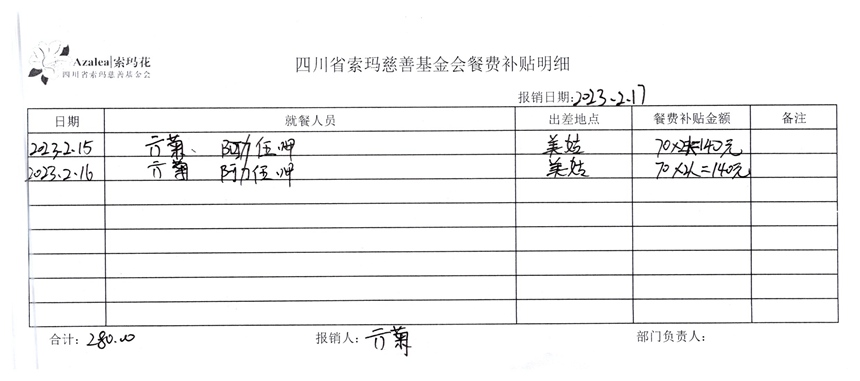 Azalea|索玛花
四川省索玛慈善基金会
四川省索玛慈善基金会餐费补贴明细
报销日期:2023.2.17
日期 就餐人员 出差地点 餐费补贴金额 备注
2023.2.15 亓菊、阿力伍呷 美姑 70×2=140元
2023.2.16 亓菊 阿力伍呷 美姑 70×2人=140元
合计:280.00 报销人:亓菊 部门负责人: